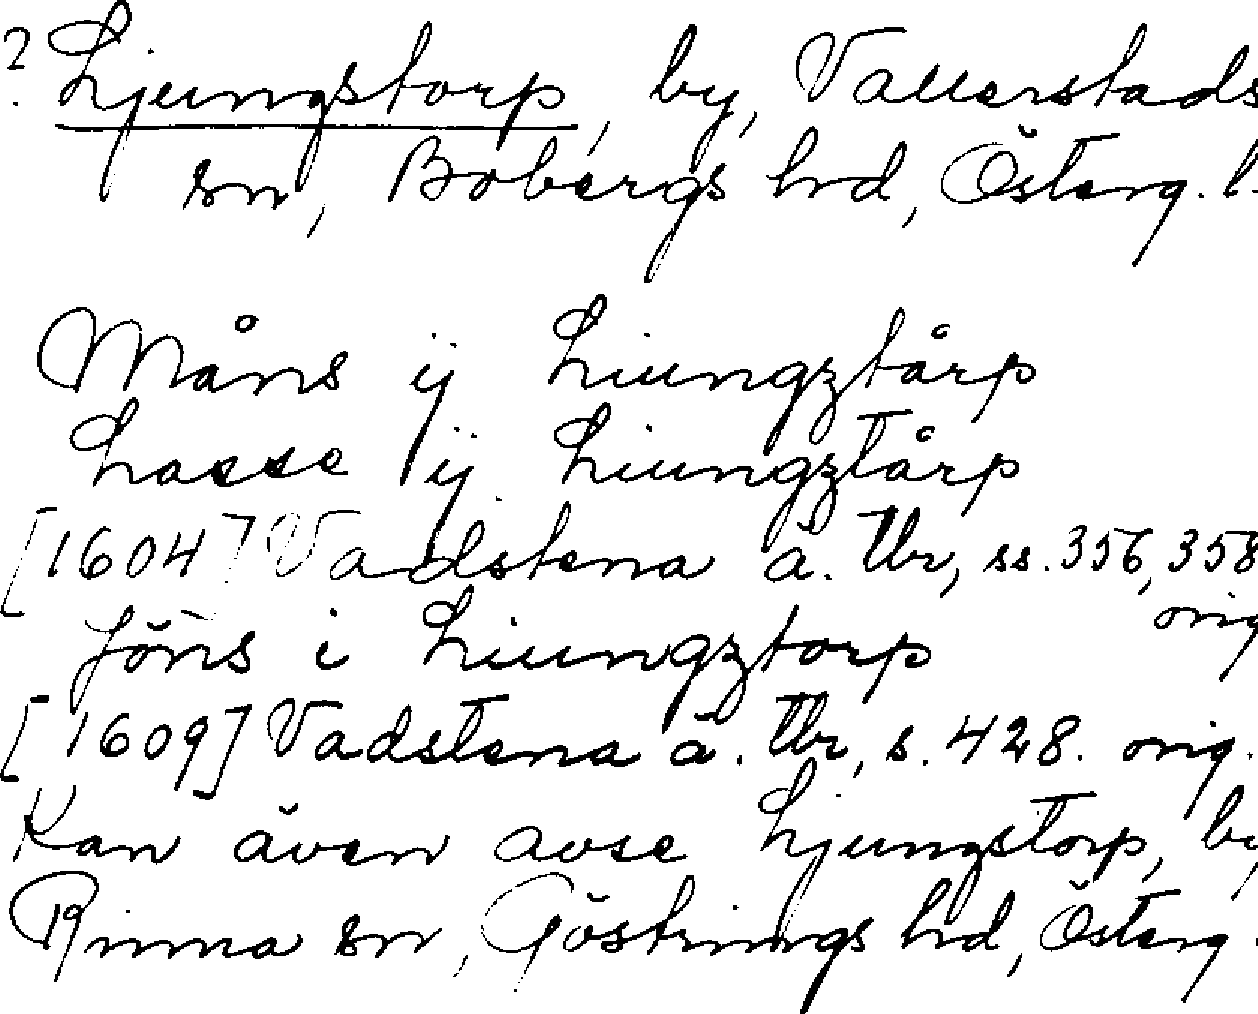 ? Ljungstorp, by, Vallerstads
sn, Bobergs hrd, Österg. l.
Måns ij Liungztårp
Lasse ij Liungztårp
[1604] Vadstena ä. tbr, ss. 356, 358
orig
Jöns i Liungztorp
[1609] Vadstena ä. tbr, s. 428. orig.
Kan även avse Ljungstorp, by,
Rinna sn, Göstrings hrd, Österg.